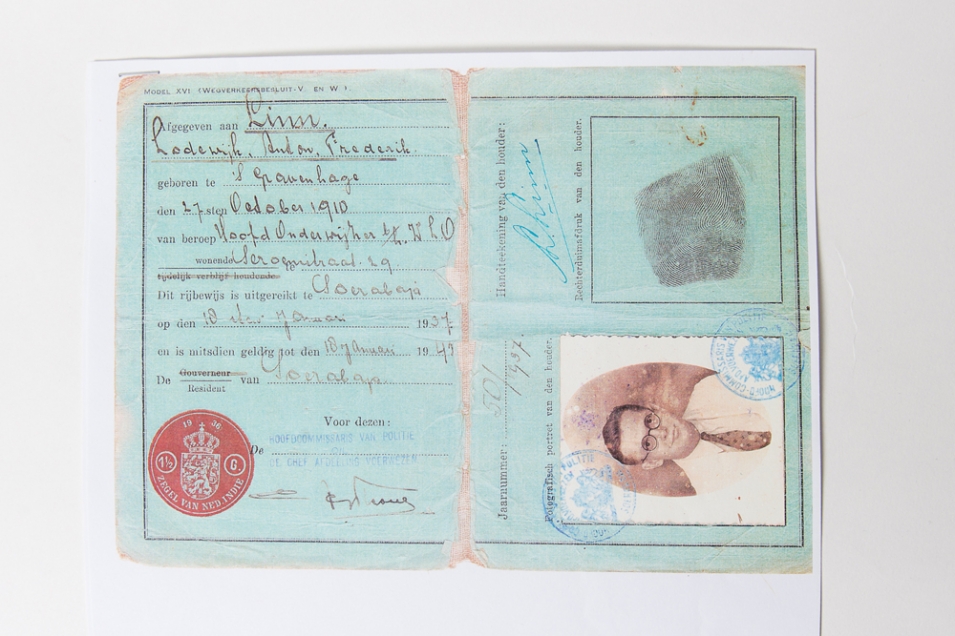 MODEL XVI (WEGVERKEERSBESLUIT-V. EN W.)
Afgegeven aan Linn.
Lodewijk, Anton, Frederik.
geboren te 's Gravenhage
den 27.sten October 1910
van beroep Hoofd Onderwijzer
wonende straat 29
tijdelijk verblijf houdende te
Dit rijbewijs is uitgereikt te Soerabaja
op den 18 Januari 1937.
en is mitsdien geldig tot den 18 Januari 1942
De Gouverneur van Soerabaja
Resident
Voor dezen:
De HOOFDCOMMISSARIS VAN POLITIE
CHEF AFDEELING VEERWEZEN
1936
1½ G.
ZEGEL VAN NED INDIE
Handteekening van den houder:
L. Linn
Rechterduimafdruk van den houder.
Jaarnummer: 501/937
Fotografisch portret van den houder.